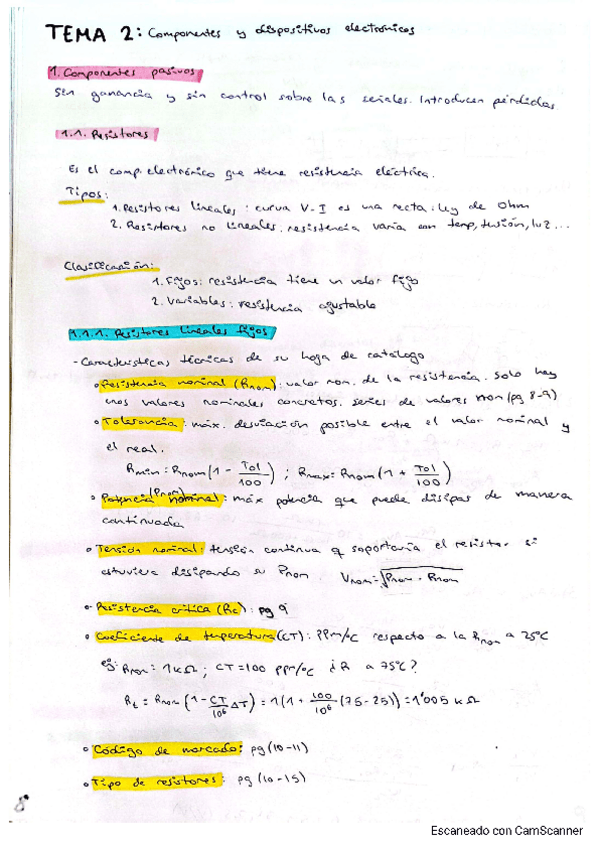 TEMA 2: Componentes y dispositivos electrónicos
1. Componentes pasivos
Sin ganancia y sin control sobre las señales. Introducen pérdidas
1.1. Resistores
Es el comp. electrónico que tiene resistencia eléctrica.
Tipos:
1. Resistores lineales: curva V-I es una recta: ley de Ohm
2. Resistores no lineales: resistencia varía con temp, tensión, luz...
Clasificación:
1. Fijos: resistencia tiene un valor fijo
2. Variables: resistencia ajustable
1.1.1. Resistores lineales fijos
- Características técnicas de su hoja de catálogo
Resistencia nominal (Rnom): valor nom. de la resistencia. Solo hay
unos valores nominales concretos. series de valores nom (pg 8-9)
Tolerancia: máx. desviación posible entre el valor nominal y
el real.
Rmin = Rnom (1 - Tol/100) ; Rmax = Rnom (1 + Tol/100)
Potencia (Pnom) nominal: máx potencia que puede disipar de manera
continuada
Tensión nominal: tensión continua q soportaría el resistor si
estuviera disipando su Pnom. Vnom = √Pnom · Rnom
Resistencia crítica (Rc): pg 9
Coeficiente de temperatura (CT): PPm/ºC respecto a la Rnom a 25ºC
ej: Rnom: 1kΩ; CT=100 PPm/ºC ¿R a 75ºC?
Rt = Rnom (1 - CT/10⁶ ΔT) = 1(1 + 100/10⁶ (75-25)) = 1'005 kΩ
Código de marcado: pg (10-11)
Tipo de resistores: pg (10-15)
8
Escaneado con CamScanner